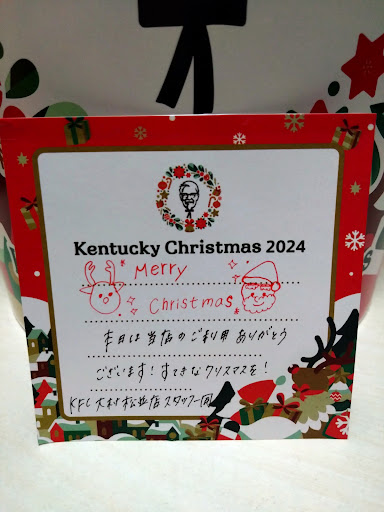 Kentucky Christmas 2024
Merry
Christmas
本日は当店のご利用ありがとう
ございます！すてきなクリスマスを！
KFC 大村松並店スタッフ一同